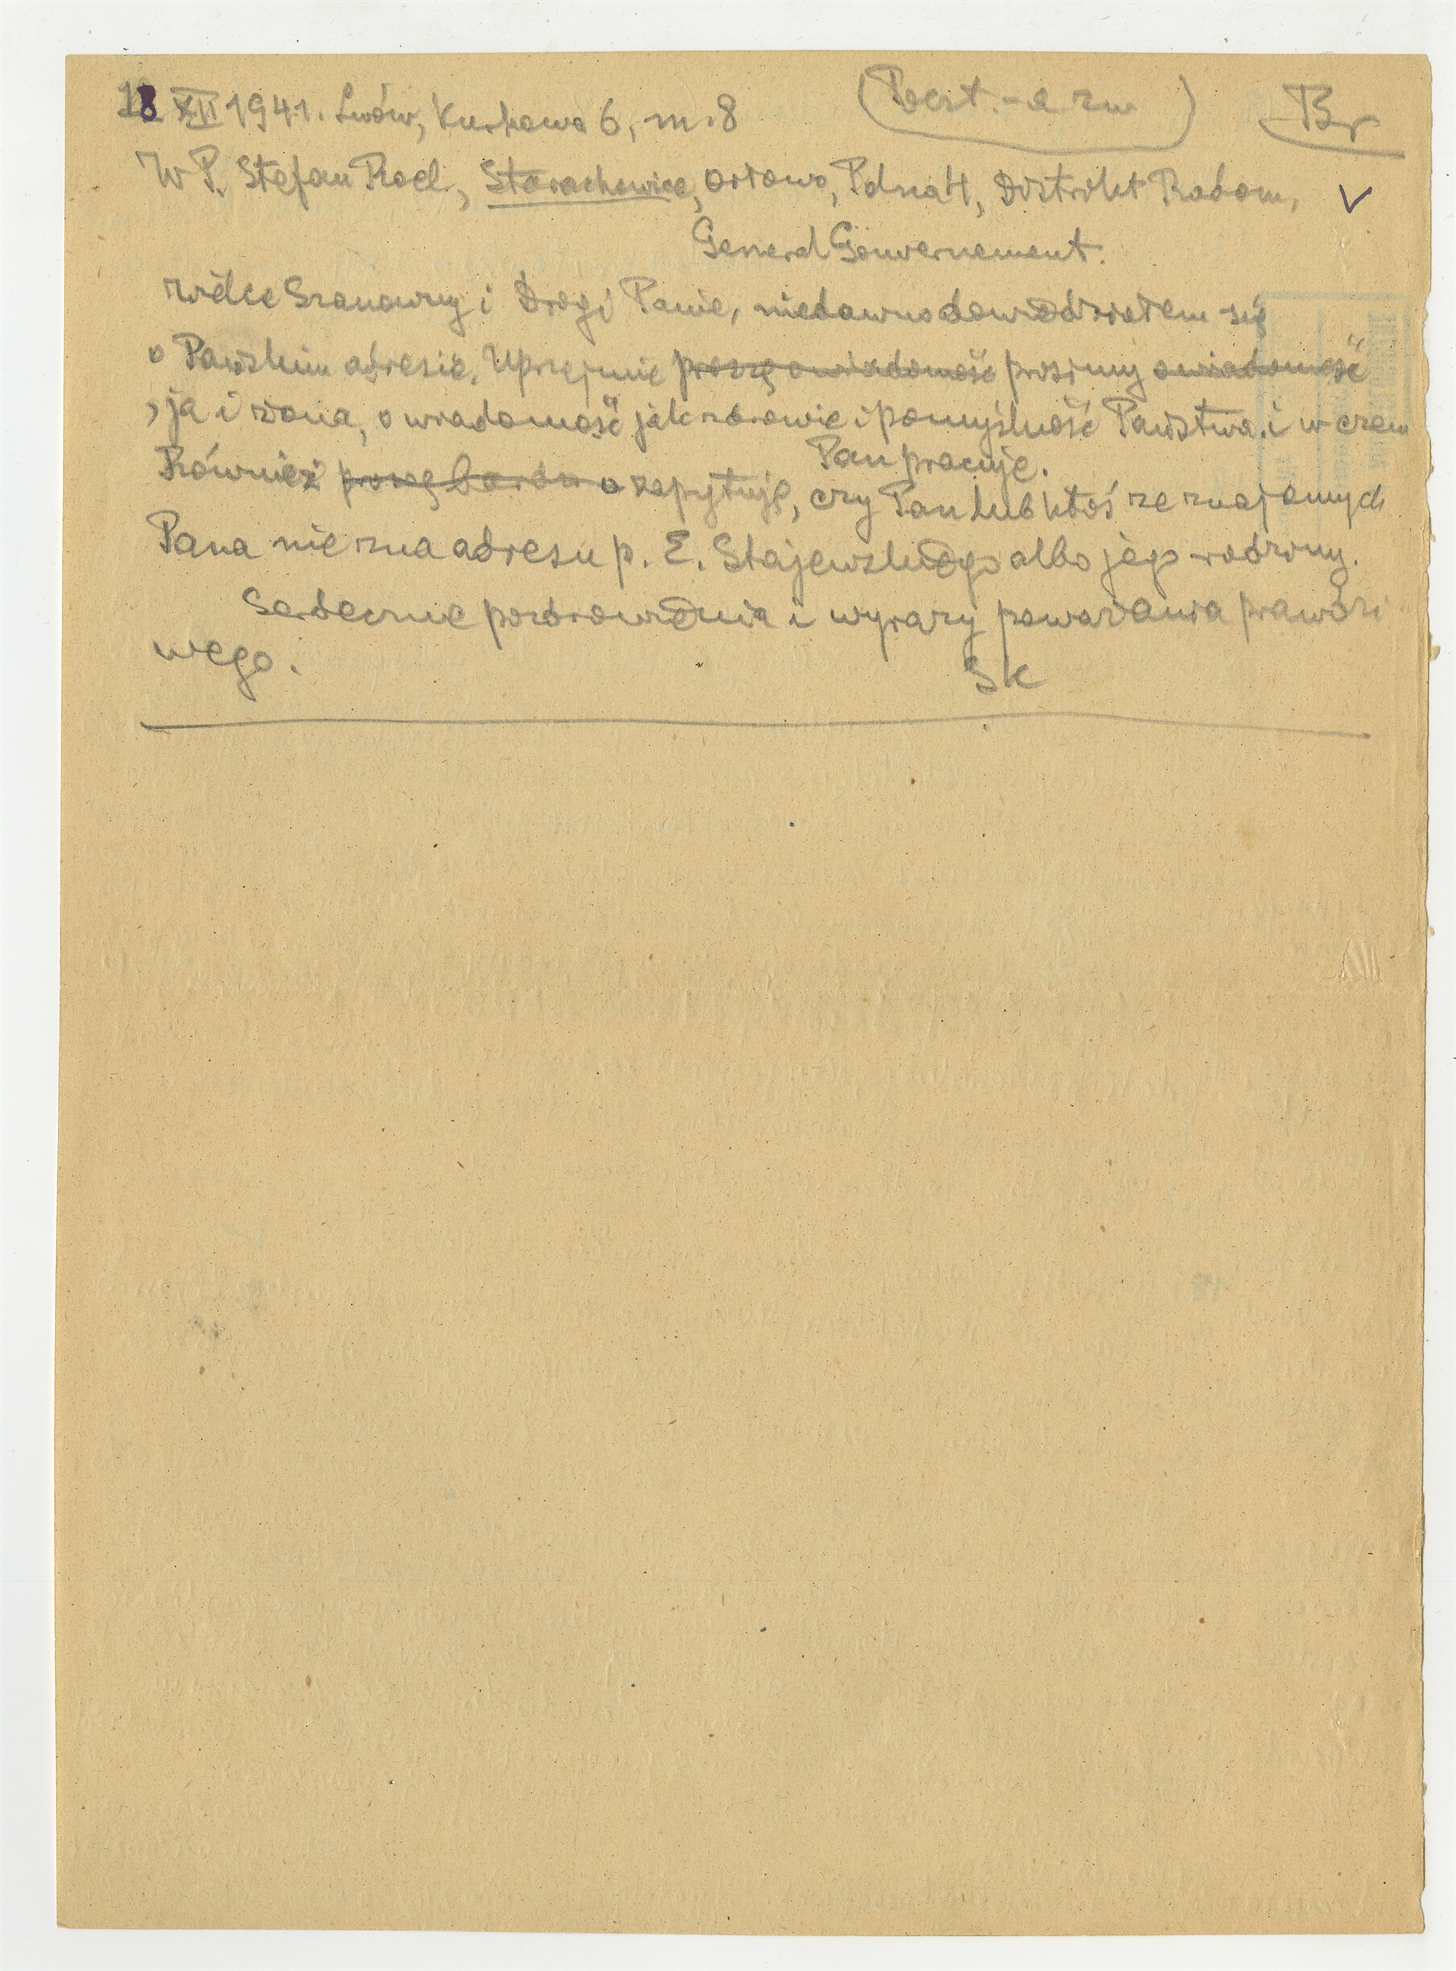 18 XII 1941. Lwów, Kurkowa 6, m. 8 Br
W P. Stefan Roel., Starachowice, Orłowo, Polna 4, Distrikt Radom, V
General Gouvernement.
Wielce Szanowny i Drogi Panie, niedawno dowiedziałem się
o Pańskim adresie. Uprzejmie proszę o wiadomość prosimy o wiadomość
, ja i żona, o wiadomość jak zdrowie i pomyślność Państwa i w czem
Pan pracuje.
Również proszę bardzo zapytuję, czy Pan lub ktoś ze znajomych
Pana nie zna adresu p. E. Stajewskiego albo jego rodziny.
Serdeczne pozdrowienia i wyrazy poważania prawdzi
wego.
SK